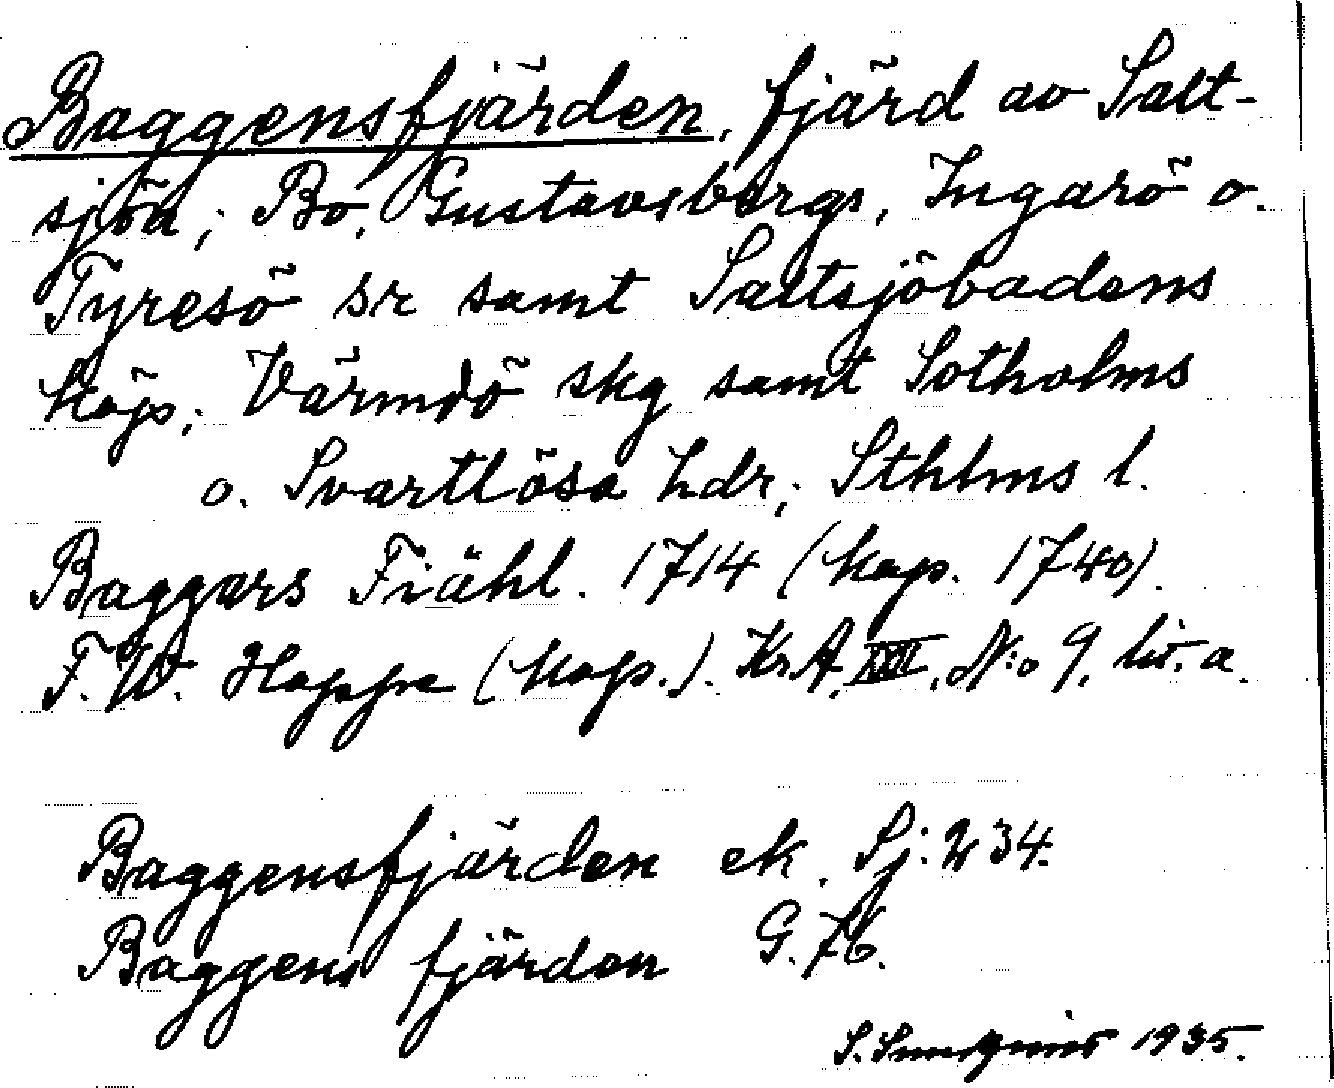 Baggensfjärden, fjärd av Salt-
sjön; Bo, Gustavsbergs, Ingarö o.
Tyresö sr samt Saltsjöbadens
köp; Värmdö skg samt Sotholms
o. Svartlösa hdr; Sthlms l.
Baggers Fiähl. 1714 (kop. 1740).
F. W. Hoppe (kop.). KrA, XVII, N:o 9, lit. a.
Baggensfjärden ek. Sj: 234.
Baggens fjärden G. 76.
S. 1935.